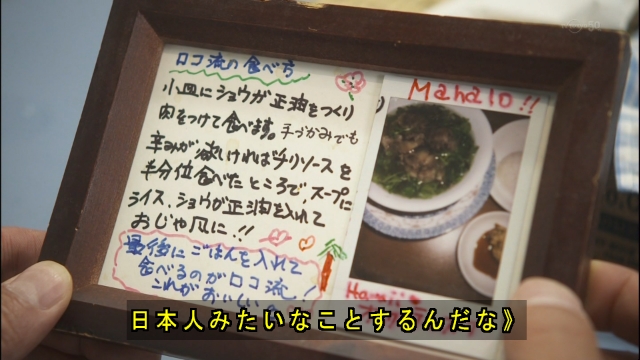 ロコ流の食べ方
小皿にショウガ正油をつくり
肉をつけて食べます。手づかみでも
辛みが欲しければチリソースを
半分位食べたところで、スープに
ライス、ショウガ正油を入れて
おじや風に!!
最後にごはんを入れて
食べるのがロコ流!
これがおいしい
Mahalo!!
Hawaii
日本人みたいなことするんだな》